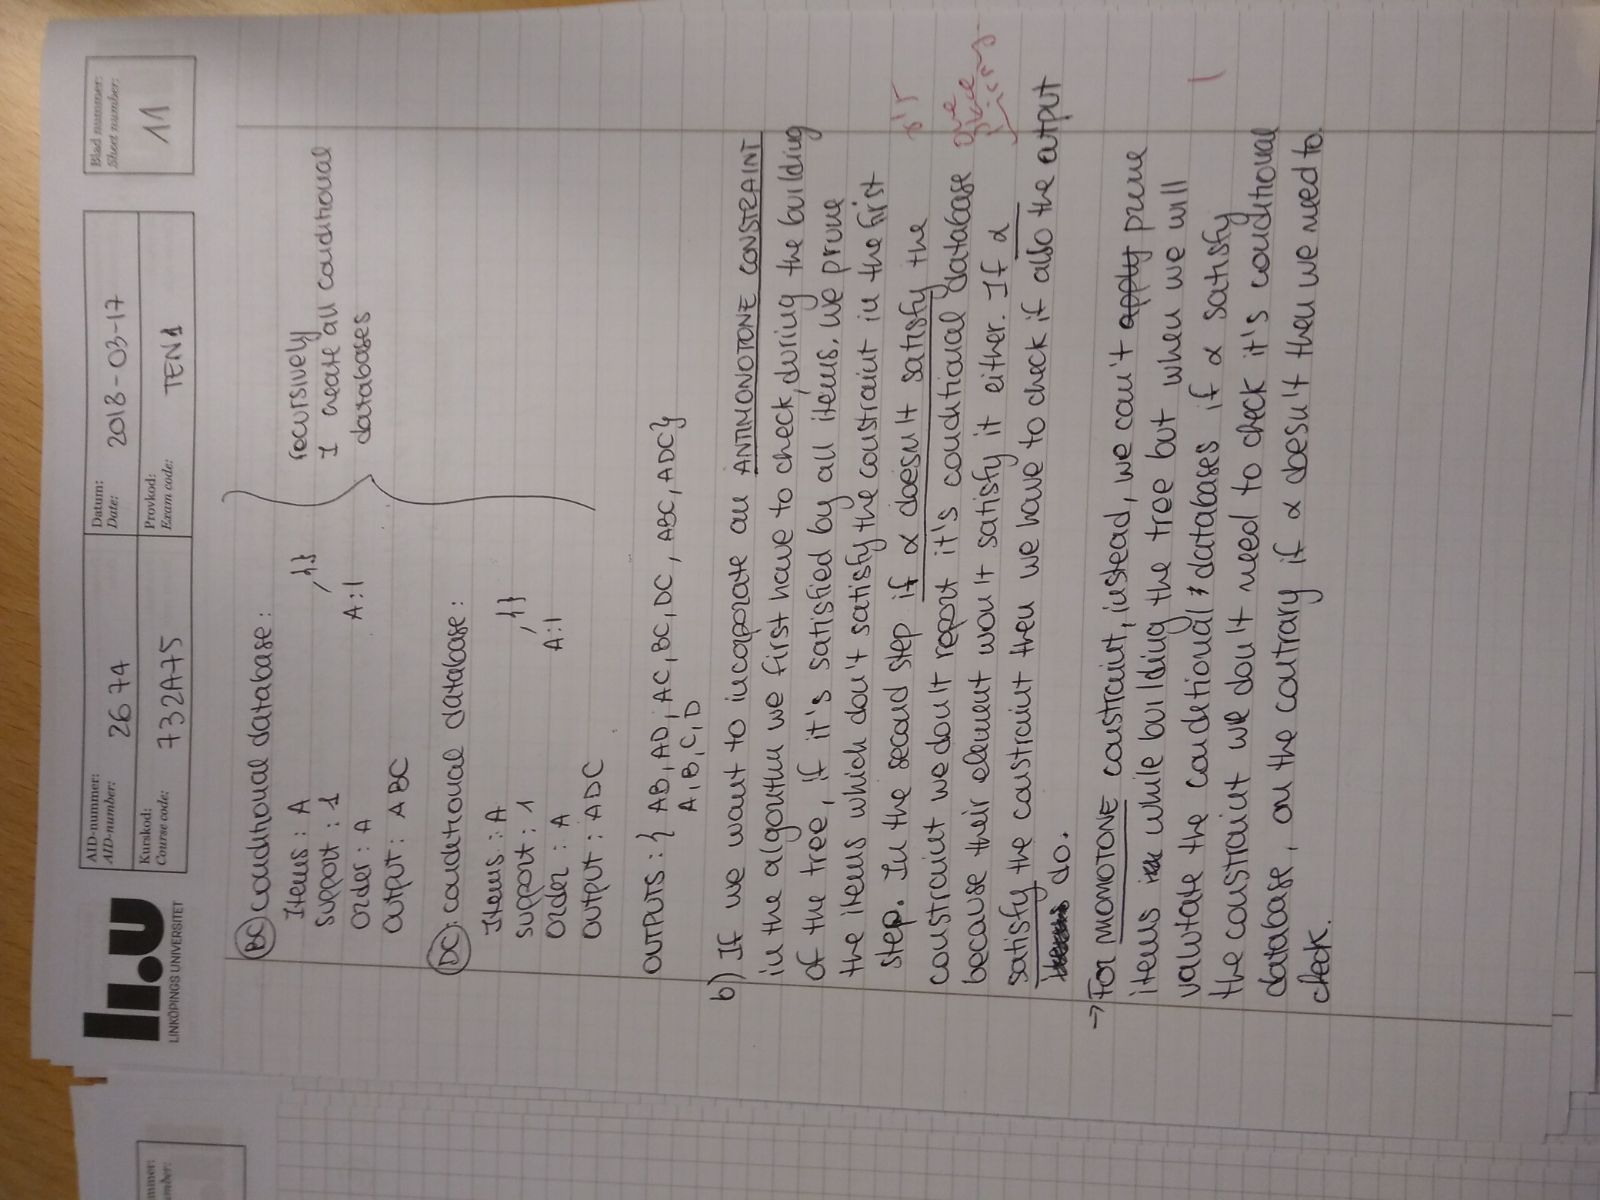 li.u
LINKÖPINGS UNIVERSITET
AID-nummer:
AID-number: 2674
Datum:
Date: 2018-03-17
Blad nummer:
Sheet number:
11
Kurskod:
Course code: 732A75
Provkod:
Exam code: TEN1
mmer:
umber:
BC conditional database:
Items: A
support: 1
Order: A
Output: ABC
{}
A:1
recursively
I create all conditional
databases
DC: conditional database:
Items: A
support: 1
Order: A
Output: ADC
{}
A:1
OUTPUTS: { AB, AD, AC, BC, DC, ABC, ADC}
A, B, C, D
b) If we want to incorporate an ANTIMONOTONE CONSTRAINT
in the algorithm we first have to check, during the building
of the tree, if it's satisfied by all items. We prune
the items which don't satisfy the constraint in the first
step. In the second step if α doesn't satisfy the
constraint we don't report it's conditional database
because their element won't satisfy it either. If α
satisfy the constraint then we have to check if also the output
do.
→ For MOMOTONE constraint, instead, we can't apply prune
items while building the tree but when we will
valutate the conditional databases if α satisfy
the constraint we don't need to check it's conditional
database, on the contrary if α doesn't then we need to
check.
one
place